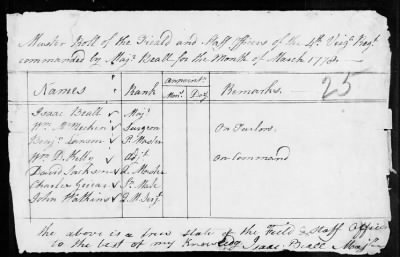 Muster Roll of the Field and Staff Officers of the 4th Virga Regt
commanded by Majr Beall for the Month of March 1778
25
Names Rank Amount: Remarks
Mon: Day
Isaac Beall Majr
Wm McMechin Surgeon On Furlow
Benj. Lonson P. Master
Wm D. Kelly Adjt on command
David Jackson Q. Master
Charles Greear Sn Mate
John Watkins Q. M. Serjt
the above is a true state of the Field & Staff Officers
to the best of my Knowledg Isaac Beall Majr